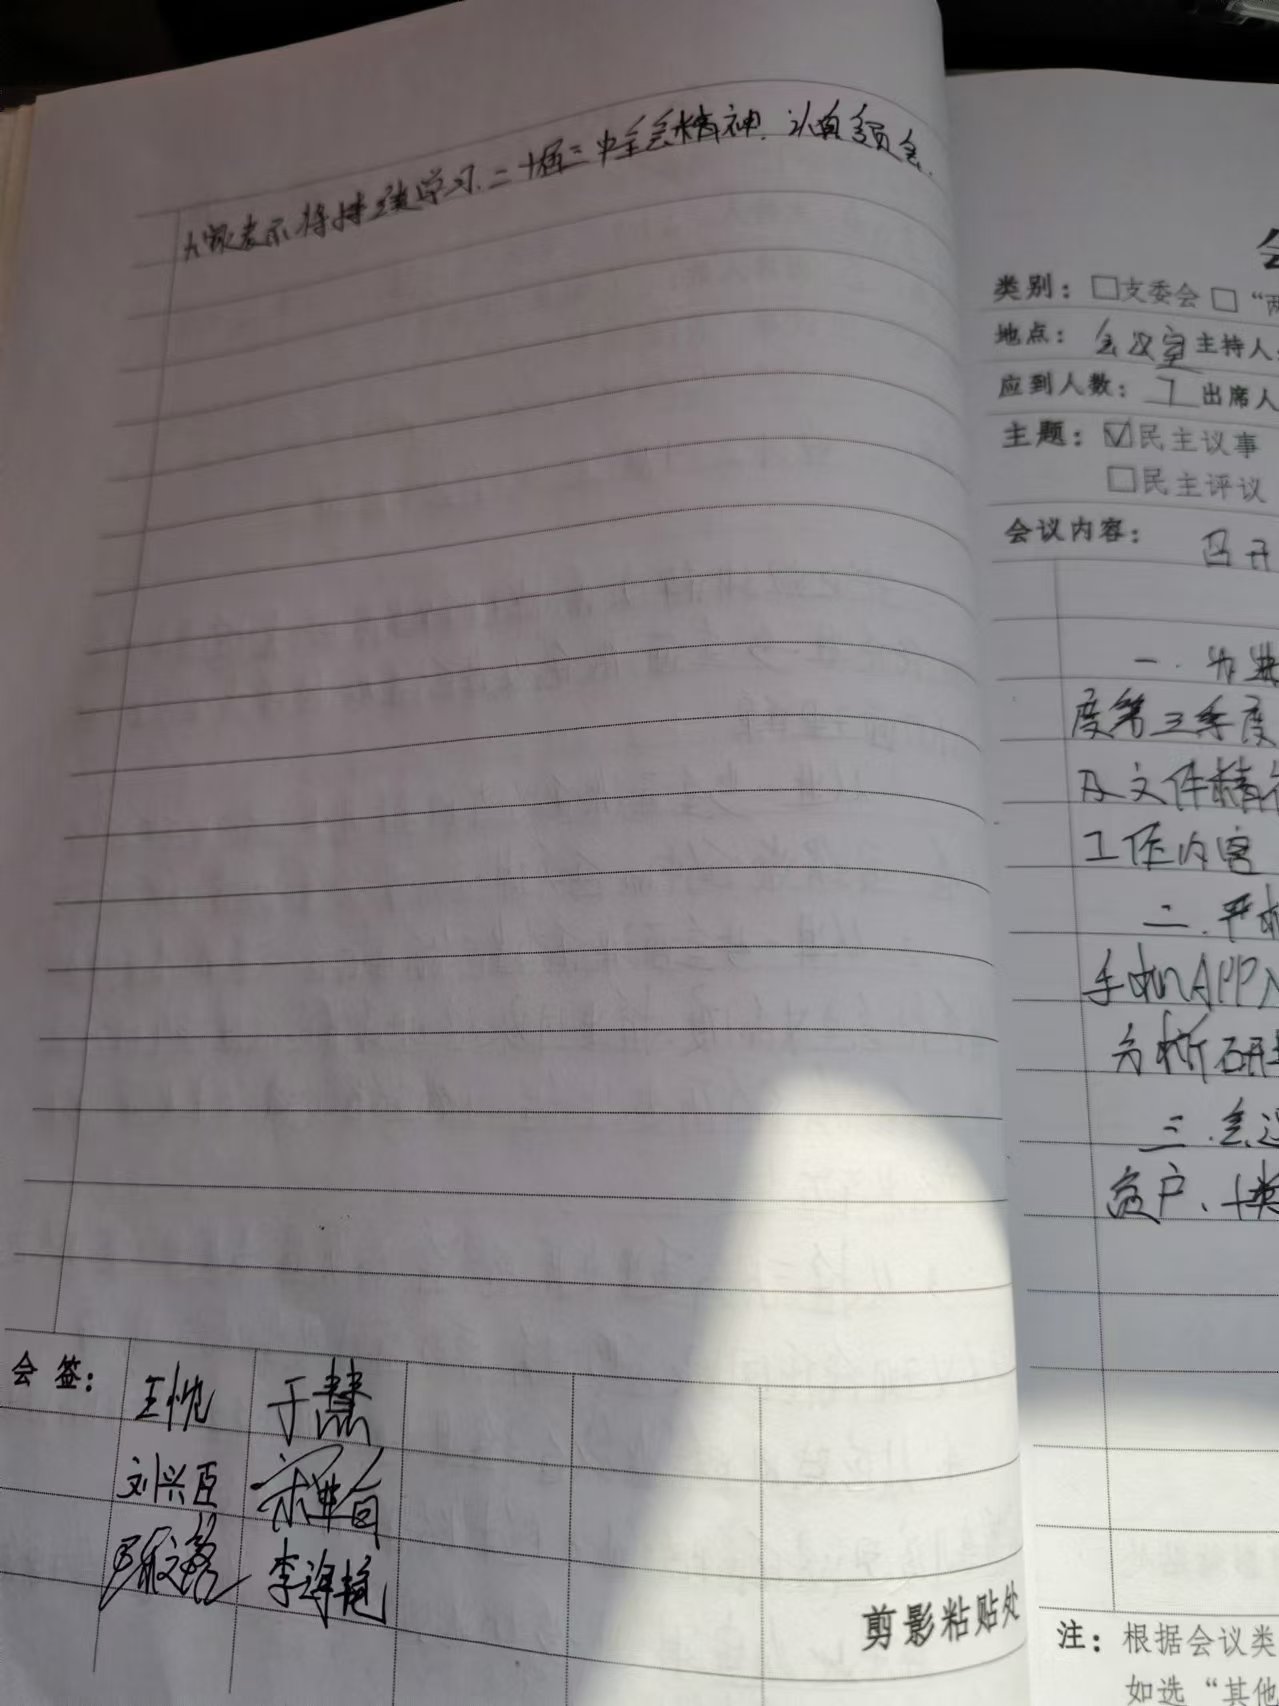 大家表示将持续学习二十届三中全会精神.认真领会.
会签:
王忱 于慧
刘兴臣
李海艳
剪影粘贴处
会
类别: □支委会 □ “两
地点: 会议室 主持人:
应到人数: 7 出席人
主题: ☑民主议事
□民主评议
会议内容: 召开
一.为进
度第三季度
及文件精神
工作内容
二.严格
手机APP入
分析研
三.会议
贫户、
注: 根据会议类
如选“其他